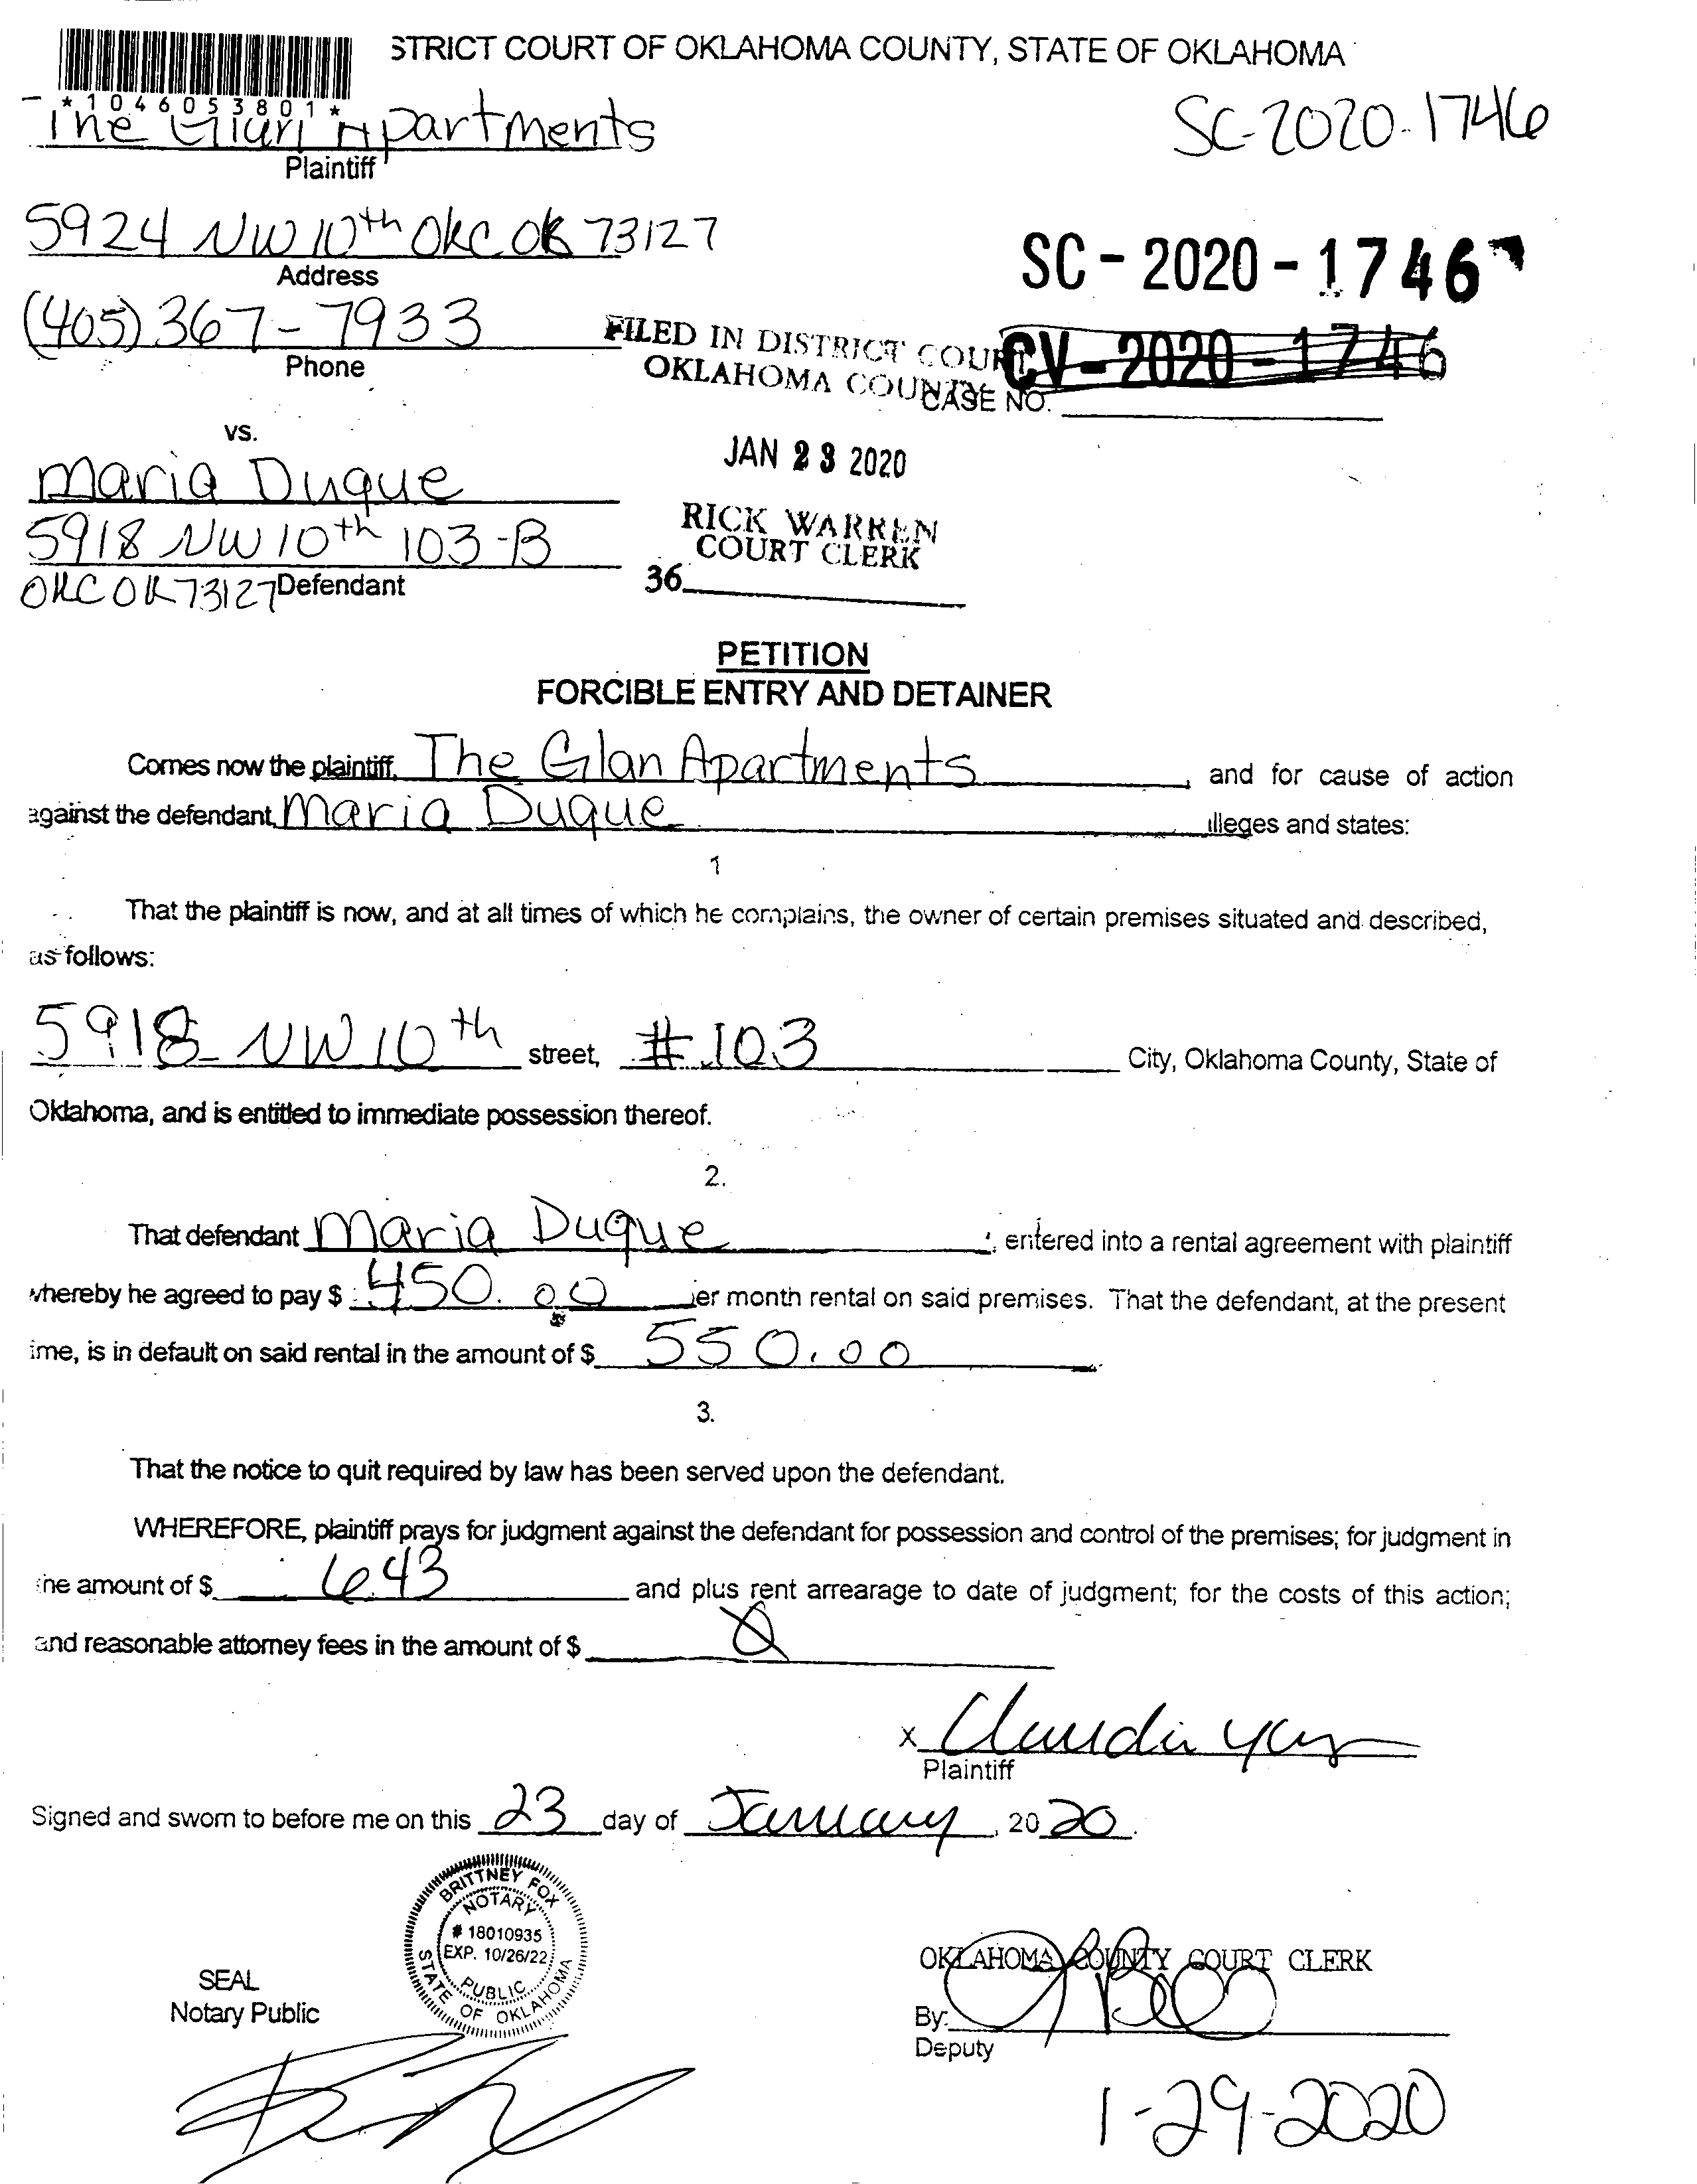 STRICT COURT OF OKLAHOMA COUNTY, STATE OF OKLAHOMA
*1046053801*
The Apartments
Plaintiff
SC-2020-1746
5924 NW 10th OKC OK 73127
Address
SC-2020-1746
(405) 367-7933
Phone
FILED IN DISTRICT COURT
OKLAHOMA COUNTY
CV-2020-1746
CASE NO.
vs.
JAN 23 2020
Maria Duque
5918 NW 10th 103-B
OKC OK 73127 Defendant
RICK WARREN
COURT CLERK
36
PETITION
FORCIBLE ENTRY AND DETAINER
Comes now the plaintiff, The Glan Apartments, and for cause of action
against the defendant, Maria Duque illeges and states:
1
That the plaintiff is now, and at all times of which he complains, the owner of certain premises situated and described,
as follows:
5918 NW 10th street, #103 City, Oklahoma County, State of
Oklahoma, and is entitled to immediate possession thereof.
2.
That defendant Maria Duque, entered into a rental agreement with plaintiff
whereby he agreed to pay $ 450.00 er month rental on said premises. That the defendant, at the present
ime, is in default on said rental in the amount of $ 550.00
3.
That the notice to quit required by law has been served upon the defendant.
WHEREFORE, plaintiff prays for judgment against the defendant for possession and control of the premises; for judgment in
he amount of $ 643 and plus rent arrearage to date of judgment; for the costs of this action;
and reasonable attorney fees in the amount of $ Ø
x Claudia
Plaintiff
Signed and sworn to before me on this 23 day of January, 2020.
BRITTNEY FOX
NOTARY
# 18010935
EXP. 10/26/22
PUBLIC
STATE OF OKLAHOMA
SEAL
Notary Public
OKLAHOMA COUNTY COURT CLERK
By:
Deputy
1-29-2020